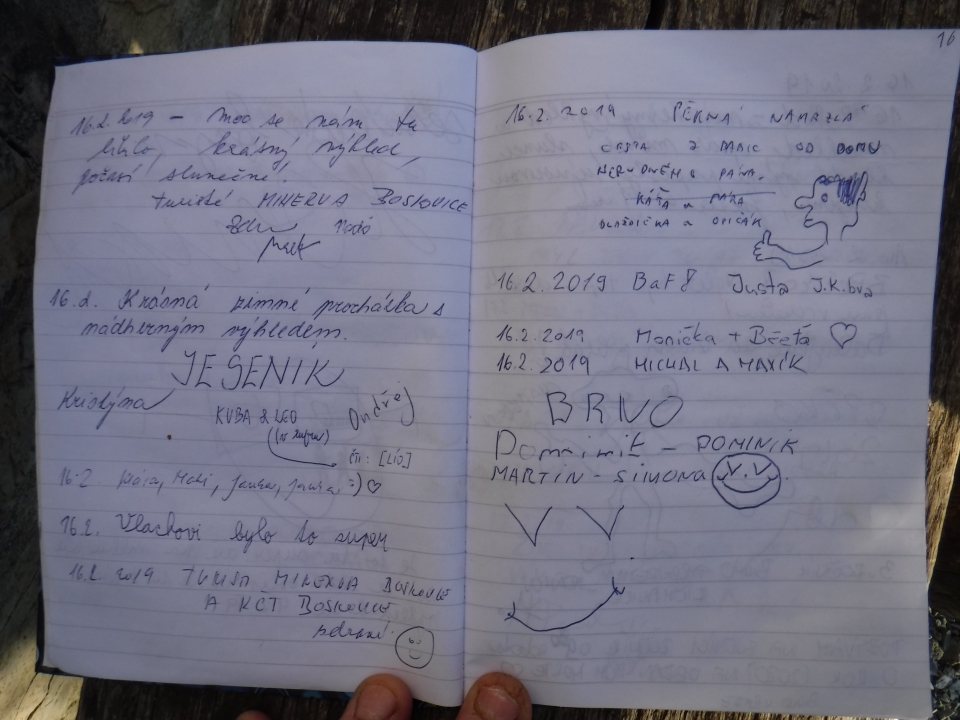 16.2.2019 – moc se nám tu
líbilo, krásný výhled,
počasí slunečné!
turisté MINERVA BOSKOVICE
16.2. Krásná zimní procházka s
nádherným výhledem.
JESENÍK
Kristýna
KUBA & LEO
Ondřej
čti: [LÍO]
16.2. :) ♡
16.2. Vlachovi bylo to super
16.2. 2019 TURISTI MINERVA BOSKOVICE
A KČT BOSKOVICE
zdraví
16
16.2.2019 PĚKNÁ NAMRZLÁ
CESTA Z OD DOMU
KÁŤA a
a OPIČÁK
16.2.2019 BaF8 Justa J.K.bva
16.2.2019 Monička + Břéťa ♡
16.2.2019 MICHAL A MAXÍK
BRNO
DOMINIK
MARTIN – SIMONA